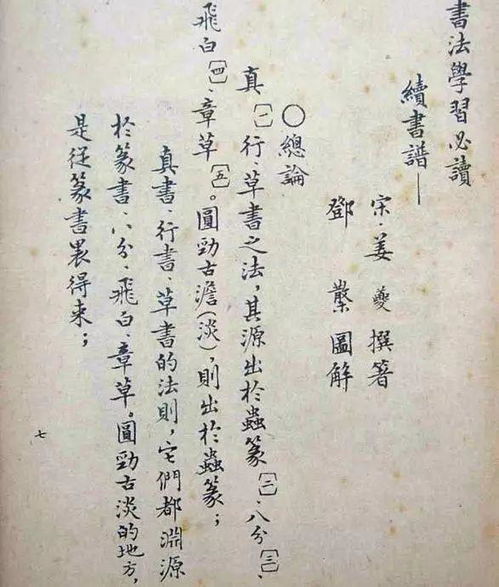 書法學習必讀
續書譜——
宋·姜夔撰著
鄧繁圖解
○總論
真〔一〕、行、草書之法，其源出於蟲篆〔二〕、八分〔三〕、
飛白〔四〕、章草〔五〕。圓勁古澹(淡)，則出於蟲篆；
真書、行書、草書的法則，它們都淵源
於篆書、八分、飛白、章草。圓勁古淡的地方，
是從篆書裏得來；
七